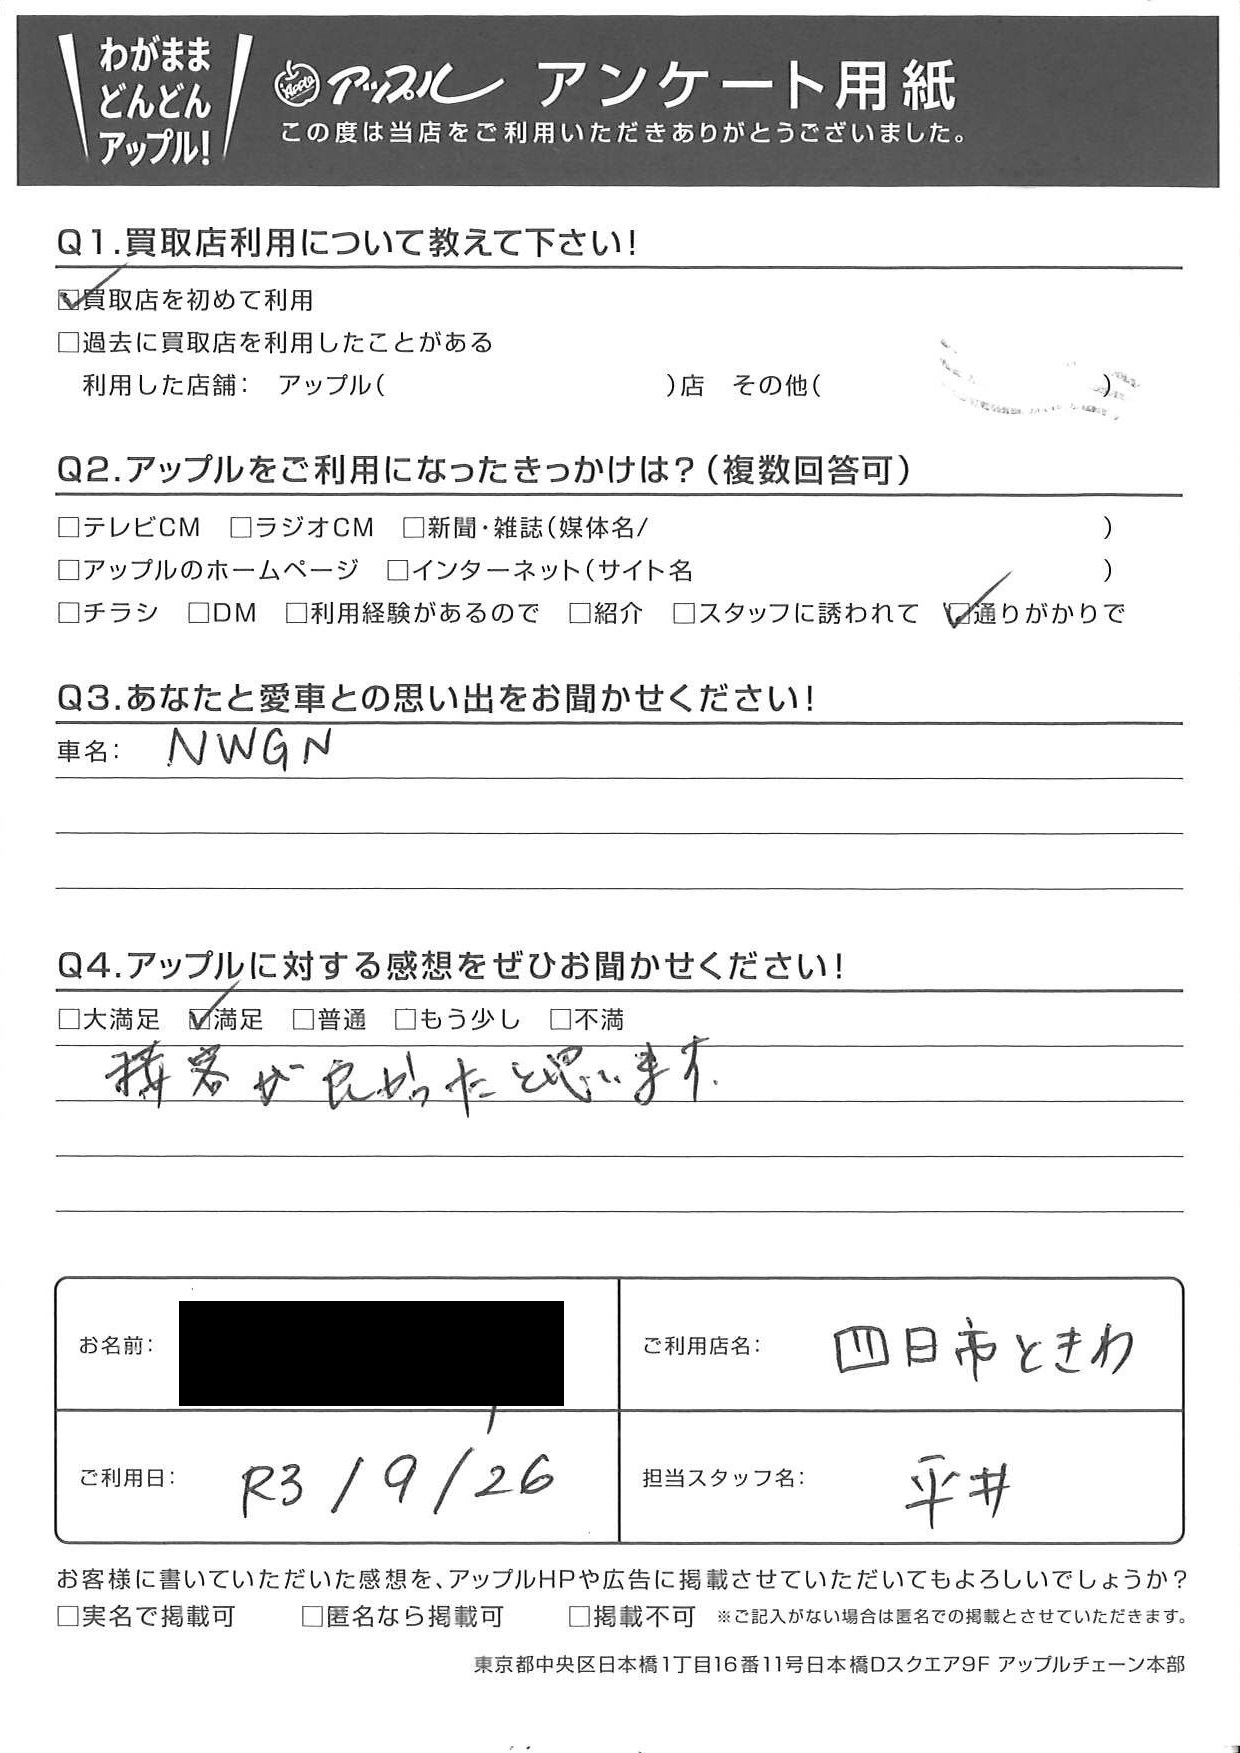 わがまま
どんどん
アップル!
Apple アップル アンケート用紙
この度は当店をご利用いただきありがとうございました。
Q1.買取店利用について教えて下さい!
☑買取店を初めて利用
□過去に買取店を利用したことがある
利用した店舗: アップル( )店 その他( )
Q2.アップルをご利用になったきっかけは?(複数回答可)
□テレビCM □ラジオCM □新聞・雑誌(媒体名/ )
□アップルのホームページ □インターネット(サイト名 )
□チラシ □DM □利用経験があるので □紹介 □スタッフに誘われて ☑通りがかりで
Q3.あなたと愛車との思い出をお聞かせください!
車名: NWGN
Q4.アップルに対する感想をぜひお聞かせください!
□大満足 ☑満足 □普通 □もう少し □不満
接客が良かったと思います.
お名前:
ご利用店名: 四日市ときわ
ご利用日: R3/9/26
担当スタッフ名: 平井
お客様に書いていただいた感想を、アップルHPや広告に掲載させていただいてもよろしいでしょうか?
□実名で掲載可 □匿名なら掲載可 □掲載不可 ※ご記入がない場合は匿名での掲載とさせていただきます。
東京都中央区日本橋1丁目16番11号日本橋Dスクエア9F アップルチェーン本部